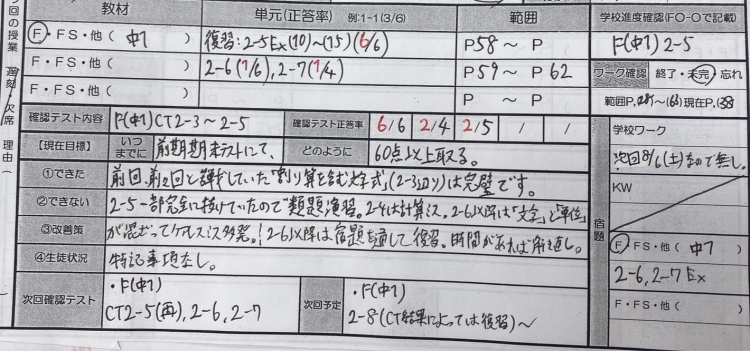 回の授業 遅刻・欠席 理由( )
教材 単元(正答率) 例:1-1(3/6) 範囲 学校進度確認(FO-Oで記載)
F・FS・他( 中1 ) 復習:2-5Ex(10)~(15)(6/6) P58~ P F(中1)2-5
F・FS・他( ) 2-6(1/6), 2-7(1/4) P59~ P62 ワーク確認 終了・未完・忘れ
F・FS・他( ) P ~ P 範囲P. 現在P.
確認テスト内容 F(中1)CT2-3~2-5 確認テスト正答率 6/6 2/4 2/5 / /
【現在目標】 いつまでに 前期期末テストにて、 どのように 60点以上取る。
①できた 前回、前々回と課していた"割り算を含む文字式"(2-3辺り)は完璧です。
②できない 2-5一部完全に抜けていたので類題演習。2-4は計算ミス、2-6以降は「文金」と「単位」
③改善策 が混ざってケアレスミス多発。2-6以降は宿題を通して復習。時間があれば解き直し。
④生徒状況 特記事項なし。
次回確認テスト ・F(中1)
CT2-5(再), 2-6, 2-7
次回予定 ・F(中1)
2-8(CT結果によっては復習)~
宿題
学校ワーク
次回8/6(土)なので無し。
KW
F・FS・他( 中1 )
2-6, 2-7 Ex
F・FS・他( )